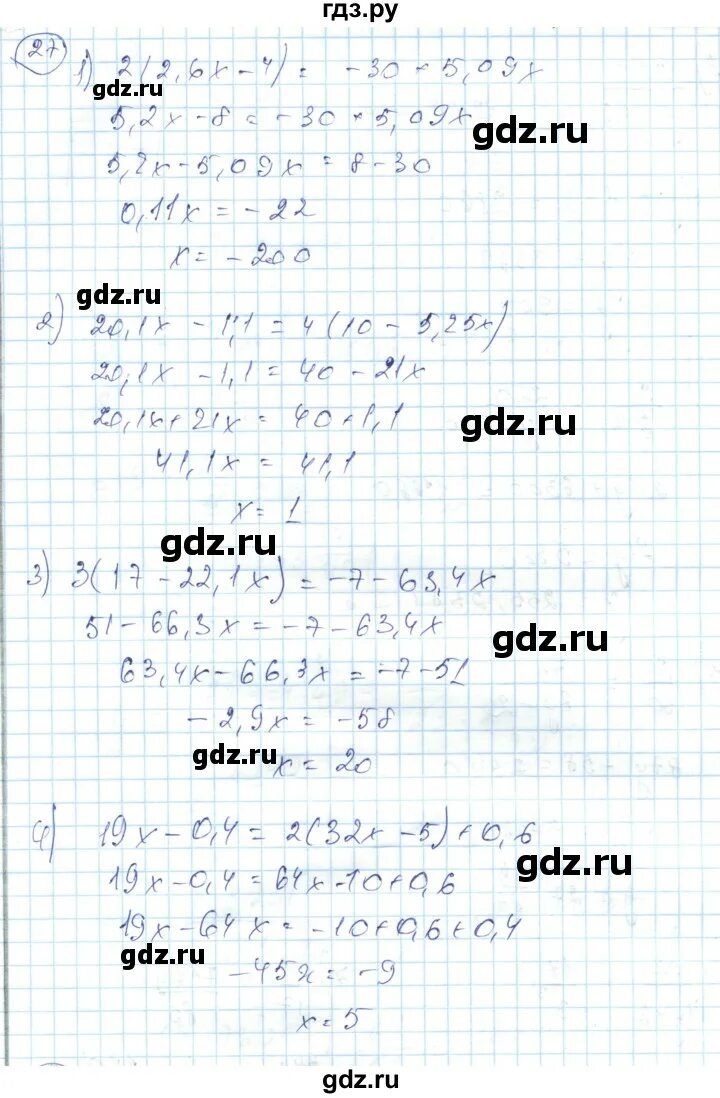 гдз.ру
27
1) 2(2,6x-4) = -30+5,09x
gdz.ru
5,2x-8 = -30+5,09x
gdz.ru
5,2x-5,09x = 8-30
0,11x = -22
x = -200
gdz.ru
2) 20,1x - 1,1 = 4(10 - 5,25x)
20,1x - 1,1 = 40 - 21x
20,1x + 21x = 40 + 1,1
gdz.ru
41,1x = 41,1
x = 1
gdz.ru
3) 3(17 - 22,1x) = -7 - 63,4x
51 - 66,3x = -7 - 63,4x
gdz.ru
63,4x - 66,3x = -7-51
-2,9x = -58
gdz.ru
x = 20
4) 19x - 0,4 = 2(32x - 5) + 0,6
gdz.ru
19x - 0,4 = 64x - 10 + 0,6
19x - 64x = -10 + 0,6 + 0,4
gdz.ru
-45x = -9
x = 5
gdz.ru